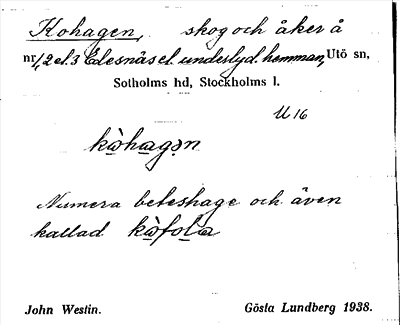 Kohagen, skog och åker å
nr 1, 2 el. 3 Edesnäs el. underlyd. hemman, Utö sn,
Sotholms hd, Stockholms l.
U 16
kòhagən
Numera beteshage och även
kallad kòfola
John Westin. Gösta Lundberg 1938.